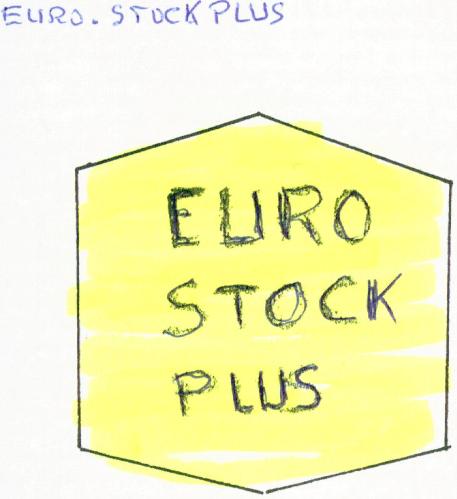 EURO. STOCK PLUS
EURO
STOCK
PLUS